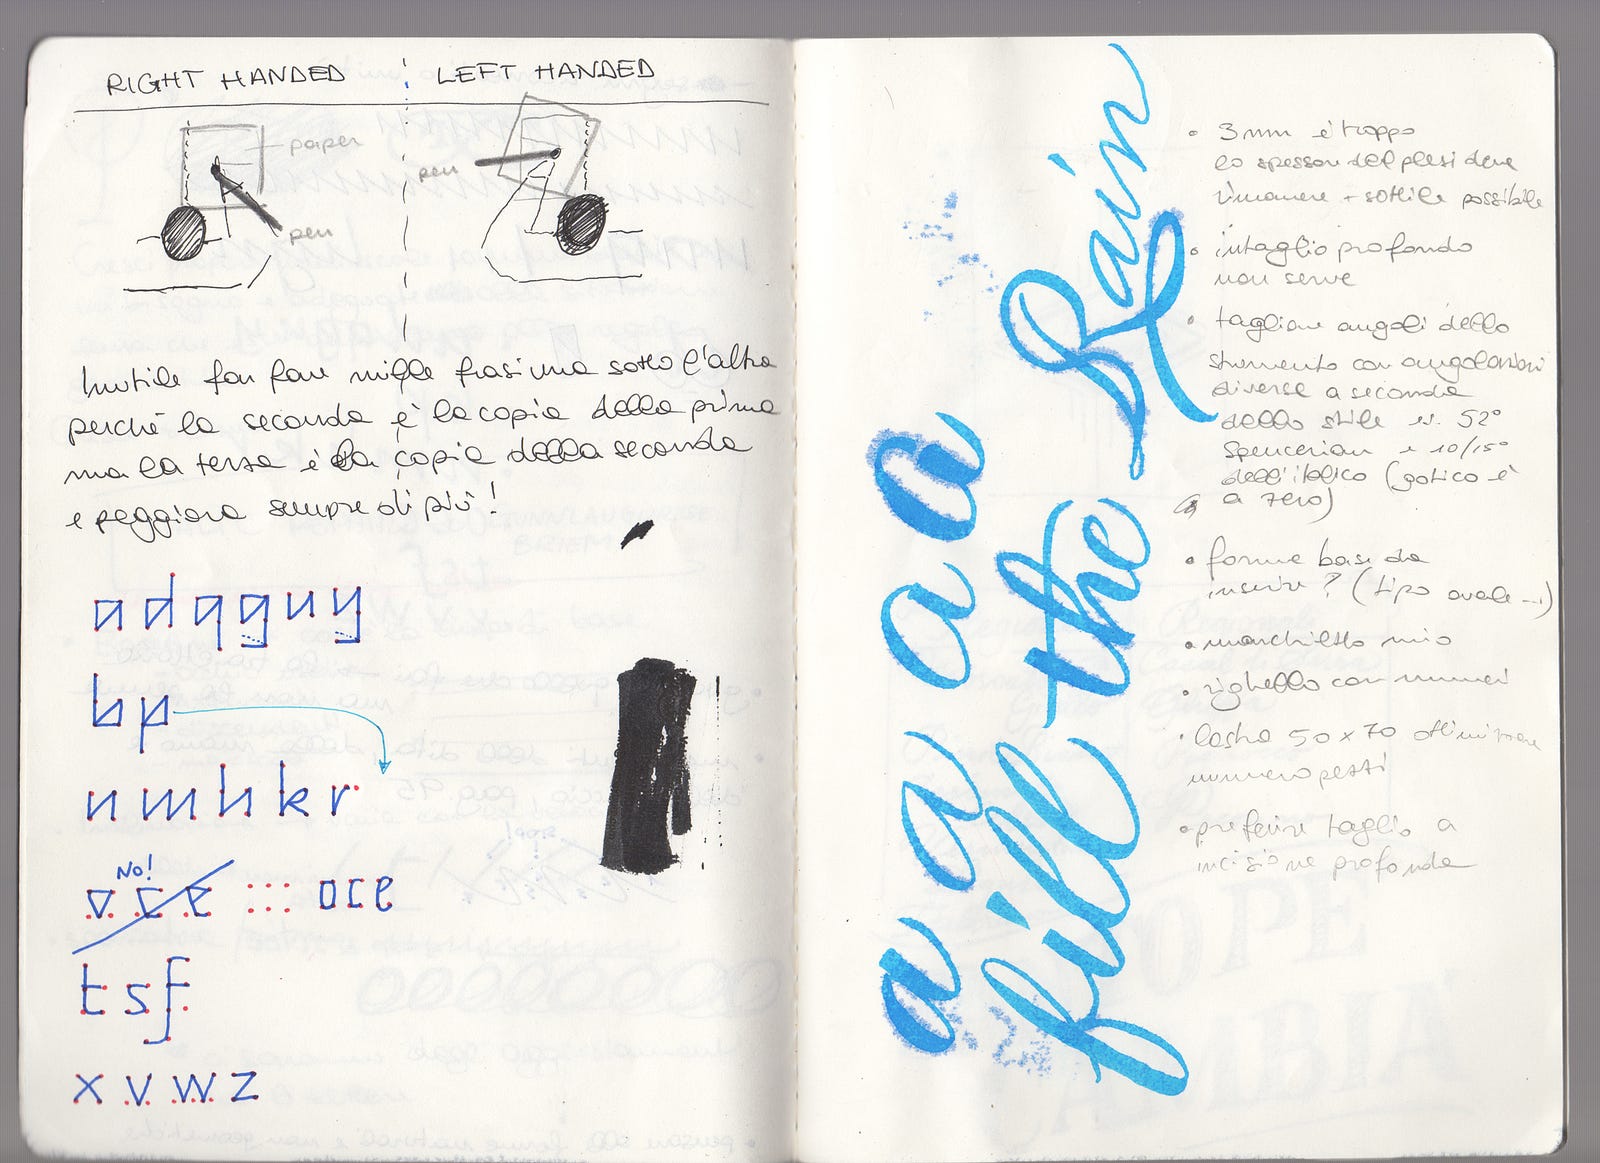 RIGHT HANDED
LEFT HANDED
paper
pen
pen
Inutile far fare mille frasi una sotto l'altra
perché la seconda è la copia della prima
ma la terza è la copia della seconda
e peggiora sempre di più!
a d q g u y
b p
n m h k r
No!
v c e
o c e
t s f
x v w z
a a a a
fill the Rain
• 3 mm è troppo
lo spessore del plexi deve
rimanere + sottile possibile
• intaglio profondo
non serve
• tagliare angoli dello
strumento con angolazioni
diverse a seconda
dello stile es. 52°
Spencerian e 10/15°
dell'italico (gotico è
a zero)
• forme base da
inserire? (tipo ovale ...)
• marchietto mio
• righello con numeri
• lastra 50x70 ottimizzare
numero pezzi
• preferire taglio a
incisione profonda